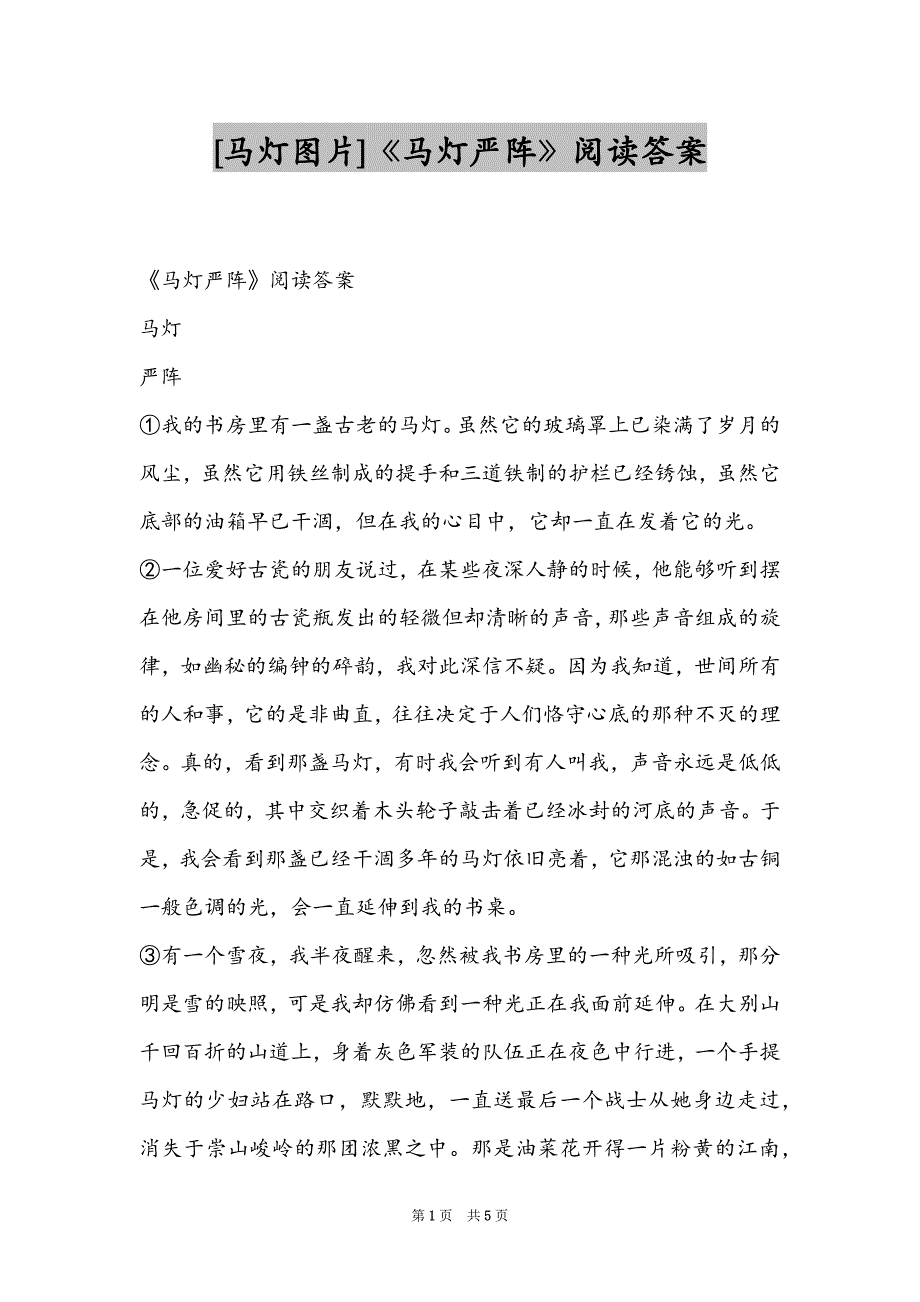 [马灯图片]《马灯严阵》阅读答案
《马灯严阵》阅读答案
马灯
严阵
①我的书房里有一盏古老的马灯。虽然它的玻璃罩上已染满了岁月的
风尘，虽然它用铁丝制成的提手和三道铁制的护栏已经锈蚀，虽然它
底部的油箱早已干涸，但在我的心目中，它却一直在发着它的光。
②一位爱好古瓷的朋友说过，在某些夜深人静的时候，他能够听到摆
在他房间里的古瓷瓶发出的轻微但却清晰的声音，那些声音组成的旋
律，如幽秘的编钟的碎韵，我对此深信不疑。因为我知道，世间所有
的人和事，它的是非曲直，往往决定于人们恪守心底的那种不灭的理
念。真的，看到那盏马灯，有时我会听到有人叫我，声音永远是低低
的，急促的，其中交织着木头轮子敲击着已经冰封的河底的声音。于
是，我会看到那盏已经干涸多年的马灯依旧亮着，它那混浊的如古铜
一般色调的光，会一直延伸到我的书桌。
③有一个雪夜，我半夜醒来，忽然被我书房里的一种光所吸引，那分
明是雪的映照，可是我却仿佛看到一种光正在我面前延伸。在大别山
千回百折的山道上，身着灰色军装的队伍正在夜色中行进，一个手提
马灯的少妇站在路口，默默地，一直送最后一个战士从她身边走过，
消失于崇山峻岭的那团浓黑之中。那是油菜花开得一片粉黄的江南，
第 1 页 共 5 页